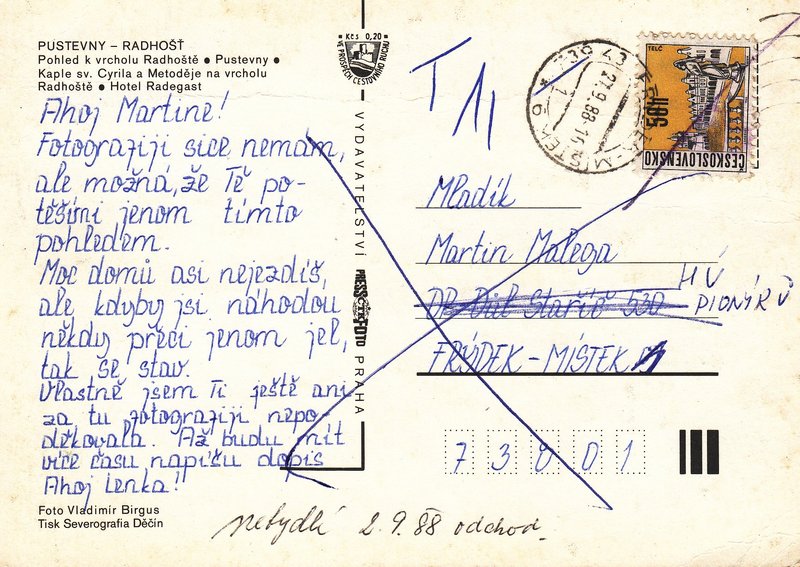 PUSTEVNY – RADHOŠŤ
Pohled k vrcholu Radhoště ● Pustevny ●
Kaple sv. Cyrila a Metoděje na vrcholu
Radhoště ● Hotel Radegast
Ahoj Martine!
Fotografiji sice nemám,
ale možná, že Tě po-
těšími jenom tímto
pohledem.
Moc domů asi nejezdíš,
ale kdyby jsi náhodou
někdy přeci jenom jel,
tak se stav.
Vlastně jsem Ti ještě ani
za tu fotografiji nepo-
děkovala. Až budu mít
více času napíšu dopis
Ahoj Lenka!!
Foto Vladimír Birgus
Tisk Severografia Děčín
Kčs 0,20
VE PROSPĚCH CESTOVNÍHO RUCHU
VYDAVATELSTVÍ PRESSFOTO PRAHA
739 43
FRÝDEK-MÍSTEK 6
27.9.88-15
TELČ
50h
ČESKOSLOVENSKO
Mladík
Martin Malega
Důl Staříč 530
HÚ PIONÝRŮ
FRÝDEK-MÍSTEK
73801
nebydlí 2.9.88 odchod.